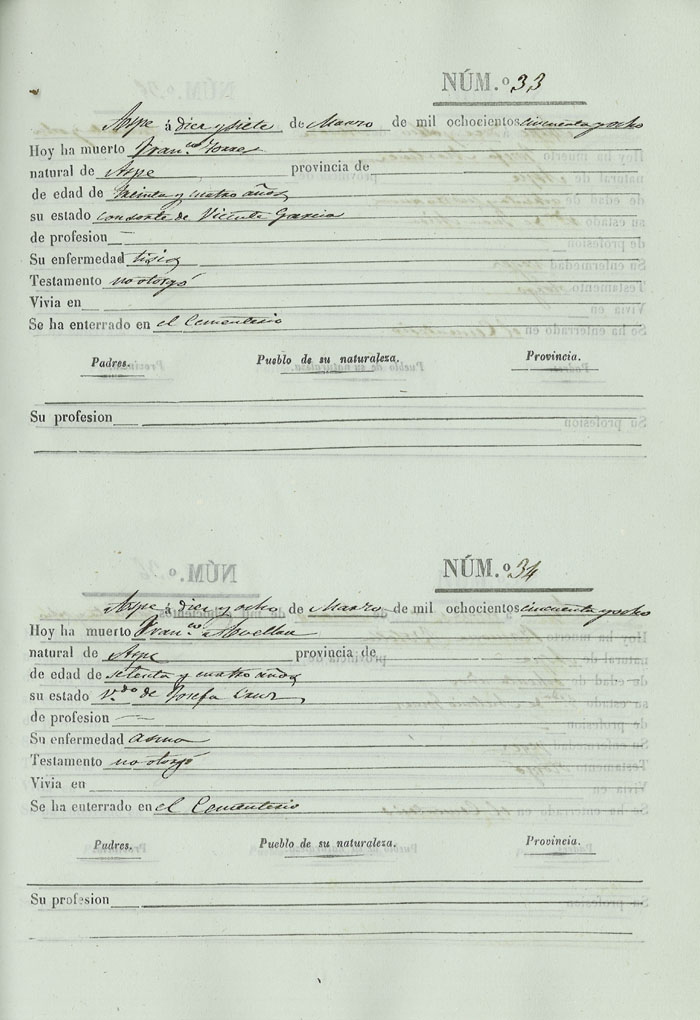 NÚM.º 33
Aspe á diez y siete de Marzo de mil ochocientos cincuenta y ocho
Hoy ha muerto Fran.ca Torres
natural de Aspe provincia de
de edad de treinta y cuatro años
su estado consorte de Vicente Garcia
de profesion —
Su enfermedad tisis
Testamento no otorgó
Vivia en
Se ha enterrado en el Cementerio
Padres. Pueblo de su naturaleza. Provincia.
Su profesion
NÚM.º 34
Aspe á diez y ocho de Marzo de mil ochocientos cincuenta y ocho
Hoy ha muerto Fran.co
natural de Aspe provincia de
de edad de setenta y cuatro años
su estado V.do de Josefa Cruz
de profesion —
Su enfermedad asma
Testamento no otorgó
Vivia en
Se ha enterrado en el Cementerio
Padres. Pueblo de su naturaleza. Provincia.
Su profesion